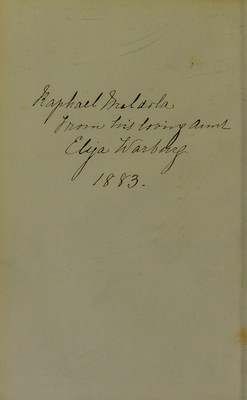 Raphael Meldola
from his loving Aunt
Elya Warburg
1883.